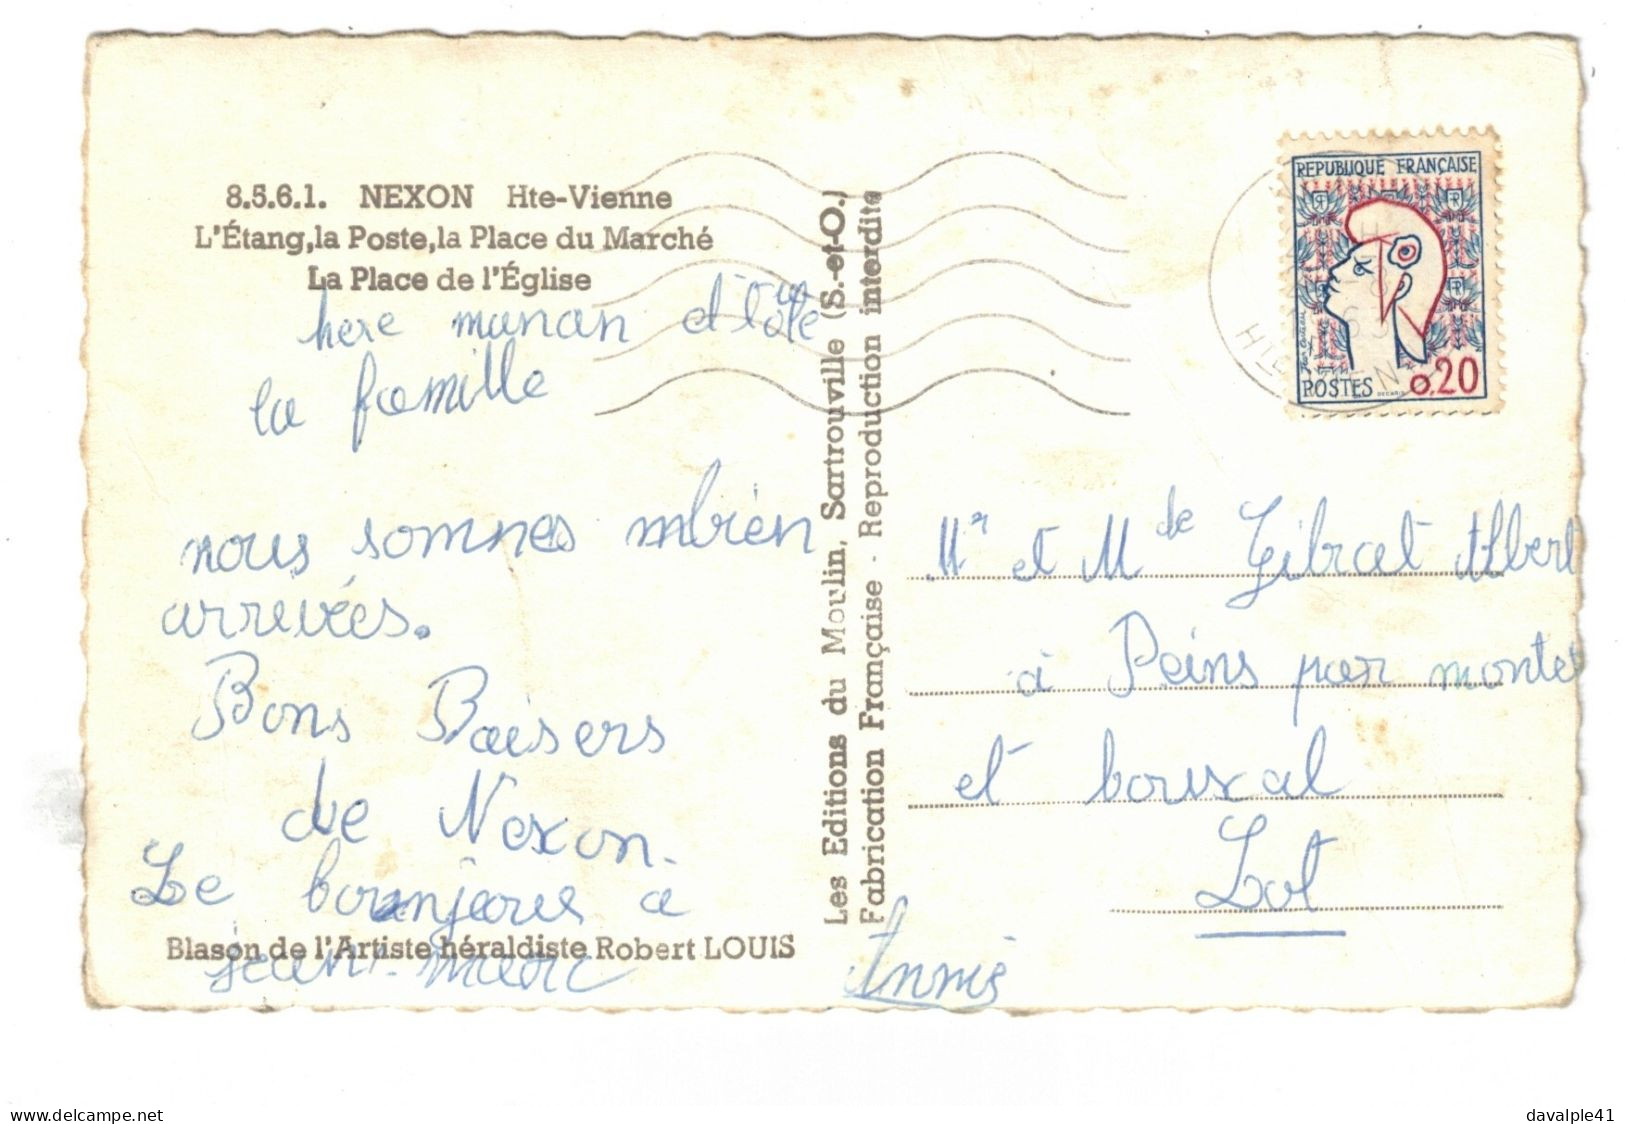 8.5.6.1. NEXON Hte-Vienne
L'Étang,la Poste,la Place du Marché
La Place de l'Église
here manan et toute
la famille
nous sommes mbien
arrevées.
Bons Baisers
de Nexon.
Le bounjour a
jean-marc
Blason de l'Artiste héraldiste Robert LOUIS
Annie
Les Editions du Moulin, Sartrouville (S.-et-O.)
Fabrication Française - Reproduction interdite
REPUBLIQUE FRANÇAISE
POSTES 0,20
DECARIS
Mr et Mde Gibrat Albert
à Peins par montet
et bouxal
Lot
www.delcampe.net
davalple41